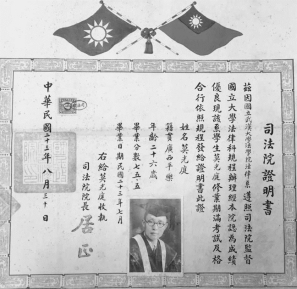 司法院證明書
茲因國立武漢大學法學院法律系遵照司法院監督
國立大學法律科規程辦理經本院認為成績
優良現該系學生莫光庭修業期滿考試及格
合行依照規程發給證明書此證
姓名莫光庭
籍貫廣西平樂
年齡二十六歲
畢業分數七五五
畢業日期民國二十三年七月
右給莫光庭收執
司法院院長 居正
中華民國二十三年八月三十日